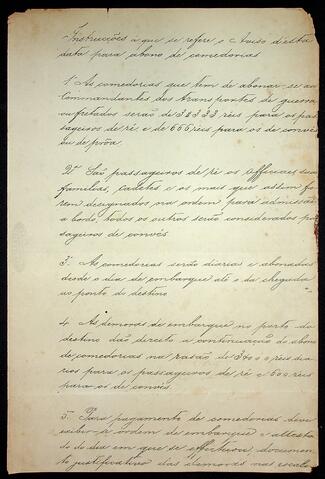 Instrucções à que se refere o Aviso d'esta
data para abono de comedorias
1ª As comedorias que tem de abonar-se aos
Commandantes dos transportes de guerra
ou fretados serão de 3$333 réis para os pas
sageiros de ré, e de 666 réis para os de convés
ou de prôa.
2ª São passageiros de ré os officiaes suas
familias, cadetes e os mais que assim fo
rem designados na ordem para admissão
a bordo, todos os outros serão considerados pas
sageiros de convés
3ª As comedorias serão diarias e abonadas
desde o dia de embarque até o da chegada
ao porto do destino
4. As demoras de embarque no porto do
destino dão direito a continuação do abono
de comedorias na rasão de reis dia
rios para os passageiros de ré e 600 réis
para os de convés.
5. Para pagamento de comedorias deve
exibir-se ordem de embarque e attesta
do do dia em que se effectuou, documen
to justificativo das demoras nas escalas